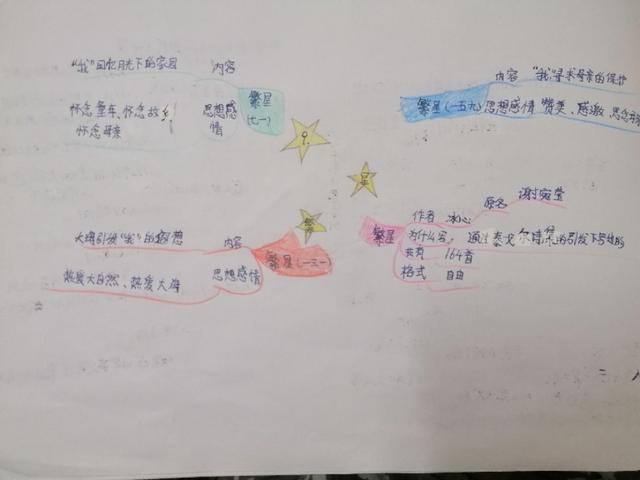 "我"回忆月光下的家园
内容
怀念童年、怀念故乡
怀念母亲
思想感
情
繁星
(七一)
9.
内容 "我"寻求母亲的保护
繁星(一五九)
思想感情 赞美、感激、思念
星
繁
大海引发"我"的
内容
繁星(一三一)
热爱大自然、热爱大海
思想感情
繁星
作者 冰心 原名 谢婉莹
为什么写, 通过泰戈尔诗集的引发下写成的
共有 164首
格式 自由